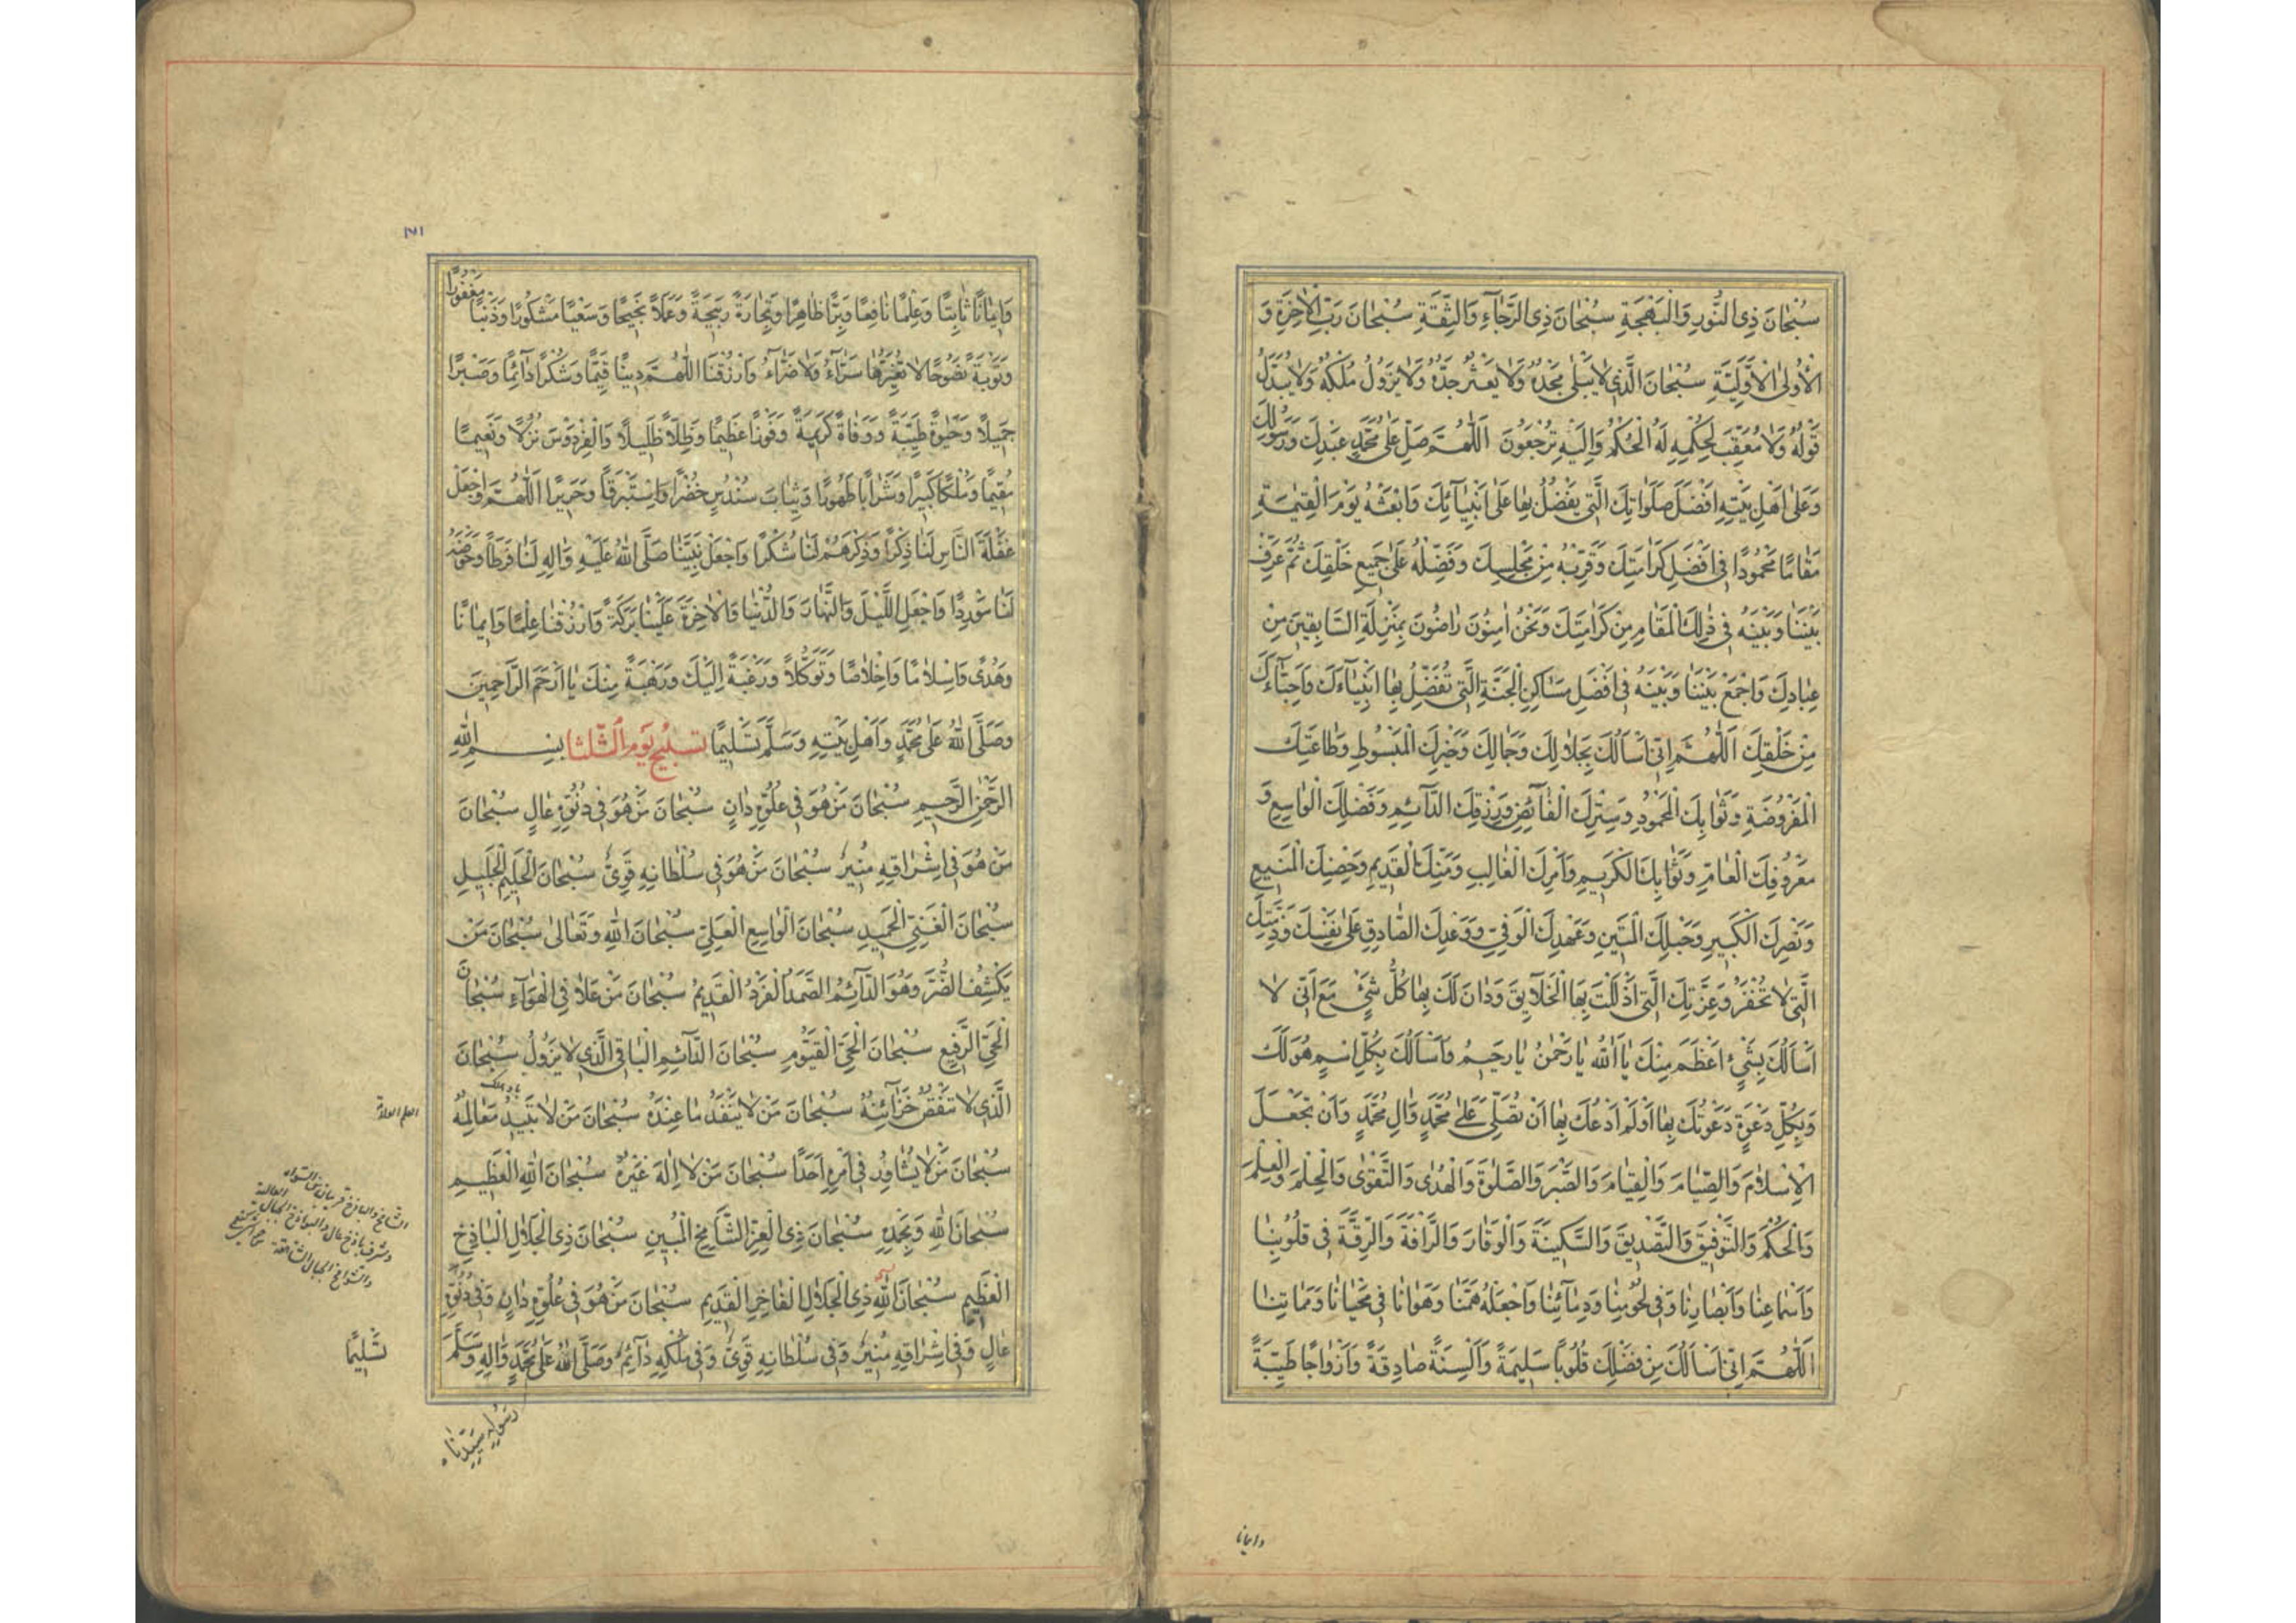 سُبْحَانَ ذِي النُّورِ وَالْبَهْجَةِ سُبْحَانَ ذِي الرَّجَاءِ وَالثِّقَةِ سُبْحَانَ رَبِّ الْاٰخِرَةِ وَ
الْأُولَى الْأَوَّلِيَّةِ سُبْحَانَ الَّذِي لَا يَبْلَى مَجْدُهُ وَلَا يَعْثُرُ جَدُّهُ وَلَا يَزُولُ مُلْكُهُ وَلَا يُبَدَّلُ
قَوْلُهُ وَلَا مُعَقِّبَ لِحُكْمِهِ لَهُ الْحُكْمُ وَاِلَيْهِ تُرْجَعُونَ اَللّٰهُمَّ صَلِّ عَلَى مُحَمَّدٍ عَبْدِكَ وَرَسُولِكَ
وَعَلَى اَهْلِ بَيْتِهِ اَفْضَلَ صَلَوَاتِكَ الَّتِي يَفْضُلُ بِهَا عَلَى اَنْبِيَآئِكَ وَابْعَثْهُ يَوْمَ الْقِيٰمَةِ
مَقَامًا مَحْمُودًا فِي اَفْضَلِ كَرَامَتِكَ وَقَرِّبْهُ مِنْ مَجْلِسِكَ وَفَضِّلْهُ عَلَى جَمِيعِ خَلْقِكَ ثُمَّ عَرِّفْ
بَيْنَنَا وَبَيْنَهُ فِي ذٰلِكَ الْمَقَامِ مِنْ كَرَامَتِكَ وَنَحْنُ اٰمِنُونَ رَاضُونَ بِمَنْزِلَةِ السَّابِقِينَ مِنْ
عِبَادِكَ وَاجْمَعْ بَيْنَنَا وَبَيْنَهُ فِي اَفْضَلِ مَسَاكِنِ الْجَنَّةِ الَّتِي تُفَضِّلُ بِهَا اَنْبِيَآءَكَ وَاَحِبَّآءَكَ
مِنْ خَلْقِكَ اَللّٰهُمَّ اِنِّي اَسْأَلُكَ بِجَلَالِكَ وَجَمَالِكَ وَخَيْرِكَ الْمَبْسُوطِ وَطَاعَتِكَ
الْمَفْرُوضَةِ وَثَوَابِكَ الْمَحْمُودِ وَسِتْرِكَ الْفَآئِضِ وَرِزْقِكَ الدَّآئِمِ وَفَضْلِكَ الْوَاسِعِ وَ
مَعْرُوفِكَ الْعَامِّ وَثَوَابِكَ الْكَرِيمِ وَاَمْرِكَ الْغَالِبِ وَمَنِّكَ الْقَدِيمِ وَحِصْنِكَ الْمَنِيعِ
وَنَصْرِكَ الْكَبِيرِ وَحَبْلِكَ الْمَتِينِ وَعَهْدِكَ الْوَفِيِّ وَوَعْدِكَ الصَّادِقِ عَلَى نَفْسِكَ وَذِمَّتِكَ
الَّتِي لَا تُخْفَرُ وَعِزَّتِكَ الَّتِي اَذْلَلْتَ بِهَا الْخَلَآيِقَ وَدَانَ لَكَ بِهَا كُلُّ شَيْءٍ مَعَ اَنِّي لَا
اَسْأَلُكَ بِشَيْءٍ اَعْظَمَ مِنْكَ يَا اَللّٰهُ يَا رَحْمٰنُ يَا رَحِيمُ وَاَسْأَلُكَ بِكُلِّ اسْمٍ هُوَ لَكَ
وَبِكُلِّ دَعْوَةٍ دَعَوْتُكَ بِهَا اَوْ لَمْ اَدْعُكَ بِهَا اَنْ تُصَلِّيَ عَلَى مُحَمَّدٍ وَاٰلِ مُحَمَّدٍ وَاَنْ تَجْعَلَ
الْاِسْلَامَ وَالصِّيَامَ وَالْقِيَامَ وَالصَّبْرَ وَالصَّلٰوةَ وَالْهُدٰى وَالتَّقْوٰى وَالْحِلْمَ وَالْعِلْمَ
وَالْحُكْمَ وَالتَّوْفِيقَ وَالتَّصْدِيقَ وَالسَّكِينَةَ وَالْوَقَارَ وَالرَّافَةَ وَالرِّقَّةَ فِي قُلُوبِنَا
وَاَسْمَاعِنَا وَاَبْصَارِنَا وَفِي لُحُومِنَا وَدِمَآئِنَا وَاجْعَلْهُ هَمَّنَا وَهَوَانَا فِي مَحْيَانَا وَمَمَاتِنَا
اَللّٰهُمَّ اِنِّي اَسْأَلُكَ مِنْ فَضْلِكَ قُلُوبًا سَلِيمَةً وَاَلْسِنَةً صَادِقَةً وَاَزْوَاجًا طَيِّبَةً
وايمانا
١٧١
وَاِيمَانًا ثَابِتًا وَعِلْمًا نَافِعًا وَبِرًّا ظَاهِرًا وَتِجَارَةً رَبِيحَةً وَعَمَلًا نَجِيحًا وَسَعْيًا مَشْكُورًا وَذَنْبًا مَغْفُورًا
وَتَوْبَةً نَصُوحًا لَا تُغَيِّرُهَا سَرَّآءُ وَلَا ضَرَّآءُ وَارْزُقْنَا اللّٰهُمَّ دِينًا قَيِّمًا وَشُكْرًا دَآئِمًا وَصَبْرًا
جَمِيلًا وَحَيٰوةً طَيِّبَةً وَوَفَاةً كَرِيمَةً وَفَوْزًا عَظِيمًا وَظِلًّا ظَلِيلًا وَالْفِرْدَوْسَ نُزُلًا وَنَعِيمًا
مُقِيمًا وَمُلْكًا كَبِيرًا وَشَرَابًا طَهُورًا وَثِيَابَ سُنْدُسٍ خُضْرًا وَاِسْتَبْرَقًا وَحَرِيرًا اَللّٰهُمَّ وَاجْعَلْ
غَفْلَةَ النَّاسِ لَنَا ذِكْرًا وَذِكْرَهُمْ لَنَا شُكْرًا وَاجْعَلْ نَبِيَّنَا صَلَّى اللّٰهُ عَلَيْهِ وَاٰلِهِ لَنَا فَرَطًا وَحَوْضَهُ
لَنَا مَوْرِدًا وَاجْعَلِ اللَّيْلَ وَالنَّهَارَ وَالدُّنْيَا وَالْاٰخِرَةَ عَلَيْنَا بَرَكَةً وَارْزُقْنَا عِلْمًا وَاِيمَانًا
وَهُدًى وَاِسْلَامًا وَاِخْلَاصًا وَتَوَكُّلًا وَرَغْبَةً اِلَيْكَ وَرَهْبَةً مِنْكَ يَا اَرْحَمَ الرَّاحِمِينَ
وَصَلَّى اللّٰهُ عَلَى مُحَمَّدٍ وَاَهْلِ بَيْتِهِ وَسَلَّمَ تَسْلِيمًا تسبيح يوم الثلثا بِسْمِ اللّٰهِ
الرَّحْمٰنِ الرَّحِيمِ سُبْحَانَ مَنْ هُوَ فِي عُلُوِّهِ دَانٍ سُبْحَانَ مَنْ هُوَ فِي دُنُوِّهِ عَالٍ سُبْحَانَ
مَنْ هُوَ فِي اِشْرَاقِهِ مُنِيرٌ سُبْحَانَ مَنْ هُوَ فِي سُلْطَانِهِ قَوِيٌّ سُبْحَانَ الْحَلِيمِ الْجَلِيلِ
سُبْحَانَ الْغَنِيِّ الْحَمِيدِ سُبْحَانَ الْوَاسِعِ الْعَلِيِّ سُبْحَانَ اللّٰهِ وَتَعَالٰى سُبْحَانَ مَنْ
يَكْشِفُ الضُّرَّ وَهُوَ الدَّآئِمُ الصَّمَدُ الْفَرْدُ الْقَدِيمُ سُبْحَانَ مَنْ عَلَا فِي الْهَوَآءِ سُبْحَانَ
الْحَيِّ الرَّفِيعِ سُبْحَانَ الْحَيِّ الْقَيُّومِ سُبْحَانَ الدَّآئِمِ الْبَاقِي الَّذِي لَا يَزُولُ سُبْحَانَ
الَّذِي لَا تَنْقُصُ خَزَآئِنُهُ سُبْحَانَ مَنْ لَا يَنْفَدُ مَا عِنْدَهُ سُبْحَانَ مَنْ لَا تَبِيدُ مَعَالِمُهُ
سُبْحَانَ مَنْ لَا يُشَاوِرُ فِي اَمْرِهِ اَحَدًا سُبْحَانَ مَنْ لَا اِلٰهَ غَيْرُهُ سُبْحَانَ اللّٰهِ الْعَظِيمِ
سُبْحَانَ اللّٰهِ وَبِحَمْدِهِ سُبْحَانَ ذِي الْعِزِّ الشَّامِخِ الْمُبِينِ سُبْحَانَ ذِي الْجَلَالِ الْبَاذِخِ
الْعَظِيمِ سُبْحَانَ اللّٰهِ ذِي الْجَلَالِ الْفَاخِرِ الْقَدِيمِ سُبْحَانَ مَنْ هُوَ فِي عُلُوِّهِ دَانٍ وَفِي دُنُوِّهِ
عَالٍ وَفِي اِشْرَاقِهِ مُنِيرٌ وَفِي سُلْطَانِهِ قَوِيٌّ وَفِي مُلْكِهِ دَآئِمٌ وَصَلَّى اللّٰهُ عَلَى مُحَمَّدٍ وَاٰلِهِ وَسَلَّمَ
تَسْلِيمًا
رسوله سيدنا